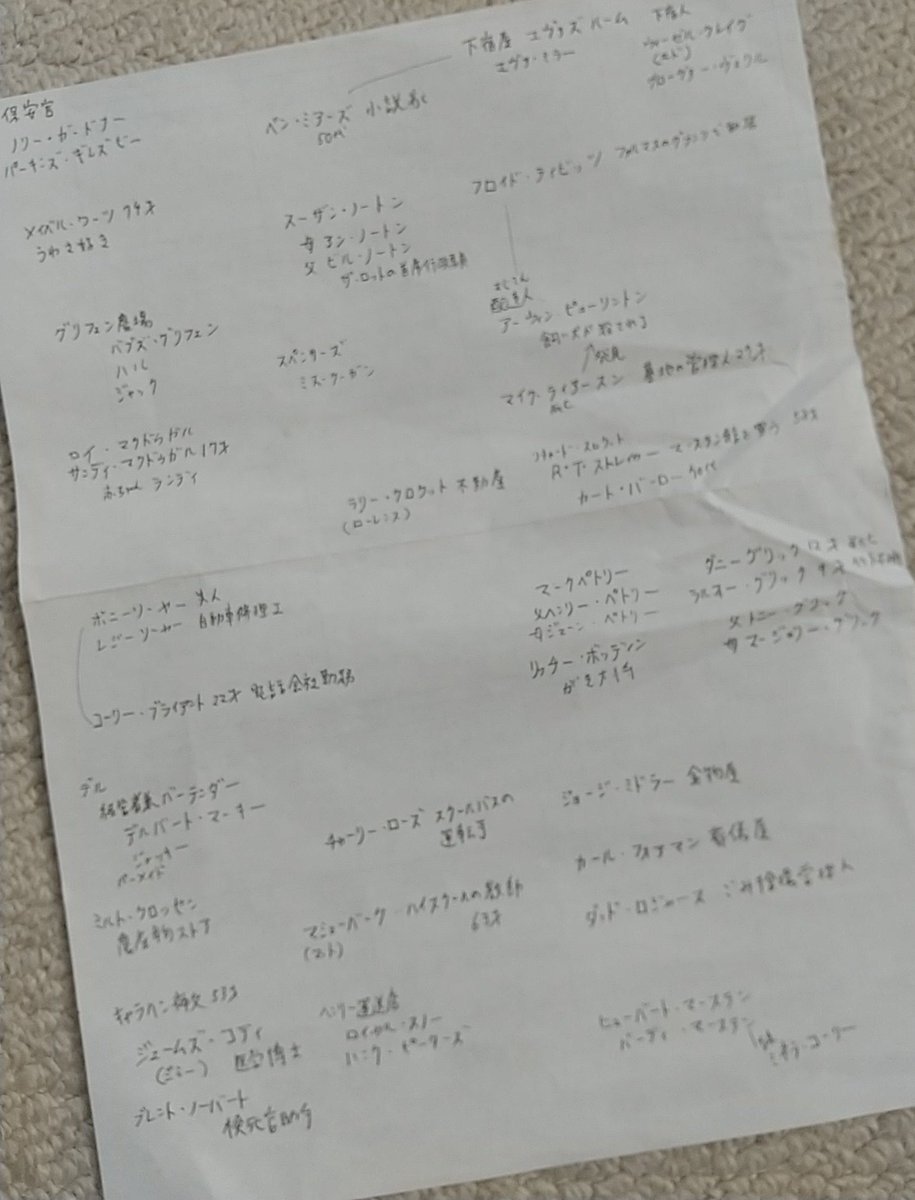 下宿屋 エヴァズ ルーム
エヴァ・ミラー
下宿人
ウィーゼル・クレイグ
(エド)
保安官
ノリー・ガードナー
パーキンズ・ギレスピー
ベン・ミアーズ 小説家
メイベル・ワーツ 74才
うわさ好き
スーザン・ノートン
母 アン・ノートン
父 ビル・ノートン
フロイド・ティビッツ
グリフェン農場
バブズ・グリフェン
ハル
ジャック
スペンサーズ
ミス・クーガン
配達人
アーウィン ピューリントン
飼い犬が殺される
↑発見
マイク・ライアースン 墓地の管理人
死亡
ロイ・マクドゥガル
サンディ・マクドゥガル 17才
赤ちゃん ランディ
ラリー・クロケット 不動産
(ローレンス)
R・T・ストレイカー マースタン館を買う
カート・バーロー
ボニー・ソーヤー 夫人
レジー・ソーヤー 自動車修理工
コーリー・ブライアント 22才 電話会社勤務
マークペトリー
父ヘンリー・ペトリー
母ジューン・ペトリー
リッチー・ボッデン
がき大将
ダニーグリック 12才
ラルフィー・グリック 9才
父 トニー・グリック
母 マージョリー・グリック
デル
経営者兼バーテンダー
デルバート・マーキー
ジャッキー
バーメイド
チャーリー・ローズ スクールバスの
運転手
ジョージ・ミドラー 金物屋
カール・フォアマン 葬儀屋
ミルト・クロッセン
農産物ストア
マシューバーク・ハイスクールの教師
(マット) 63才
ダッド・ロジャース ごみ捨場管理人
キャラハン神父 53才
ジェームズ・コディ
(ジミー) 医学博士
ヘンリー運送店
ロイヤル・スノー
ハンク・ピーターズ
ヒューバート・マーステン
バーディ・マーステン
ブレント・ノーバート
検死官助手